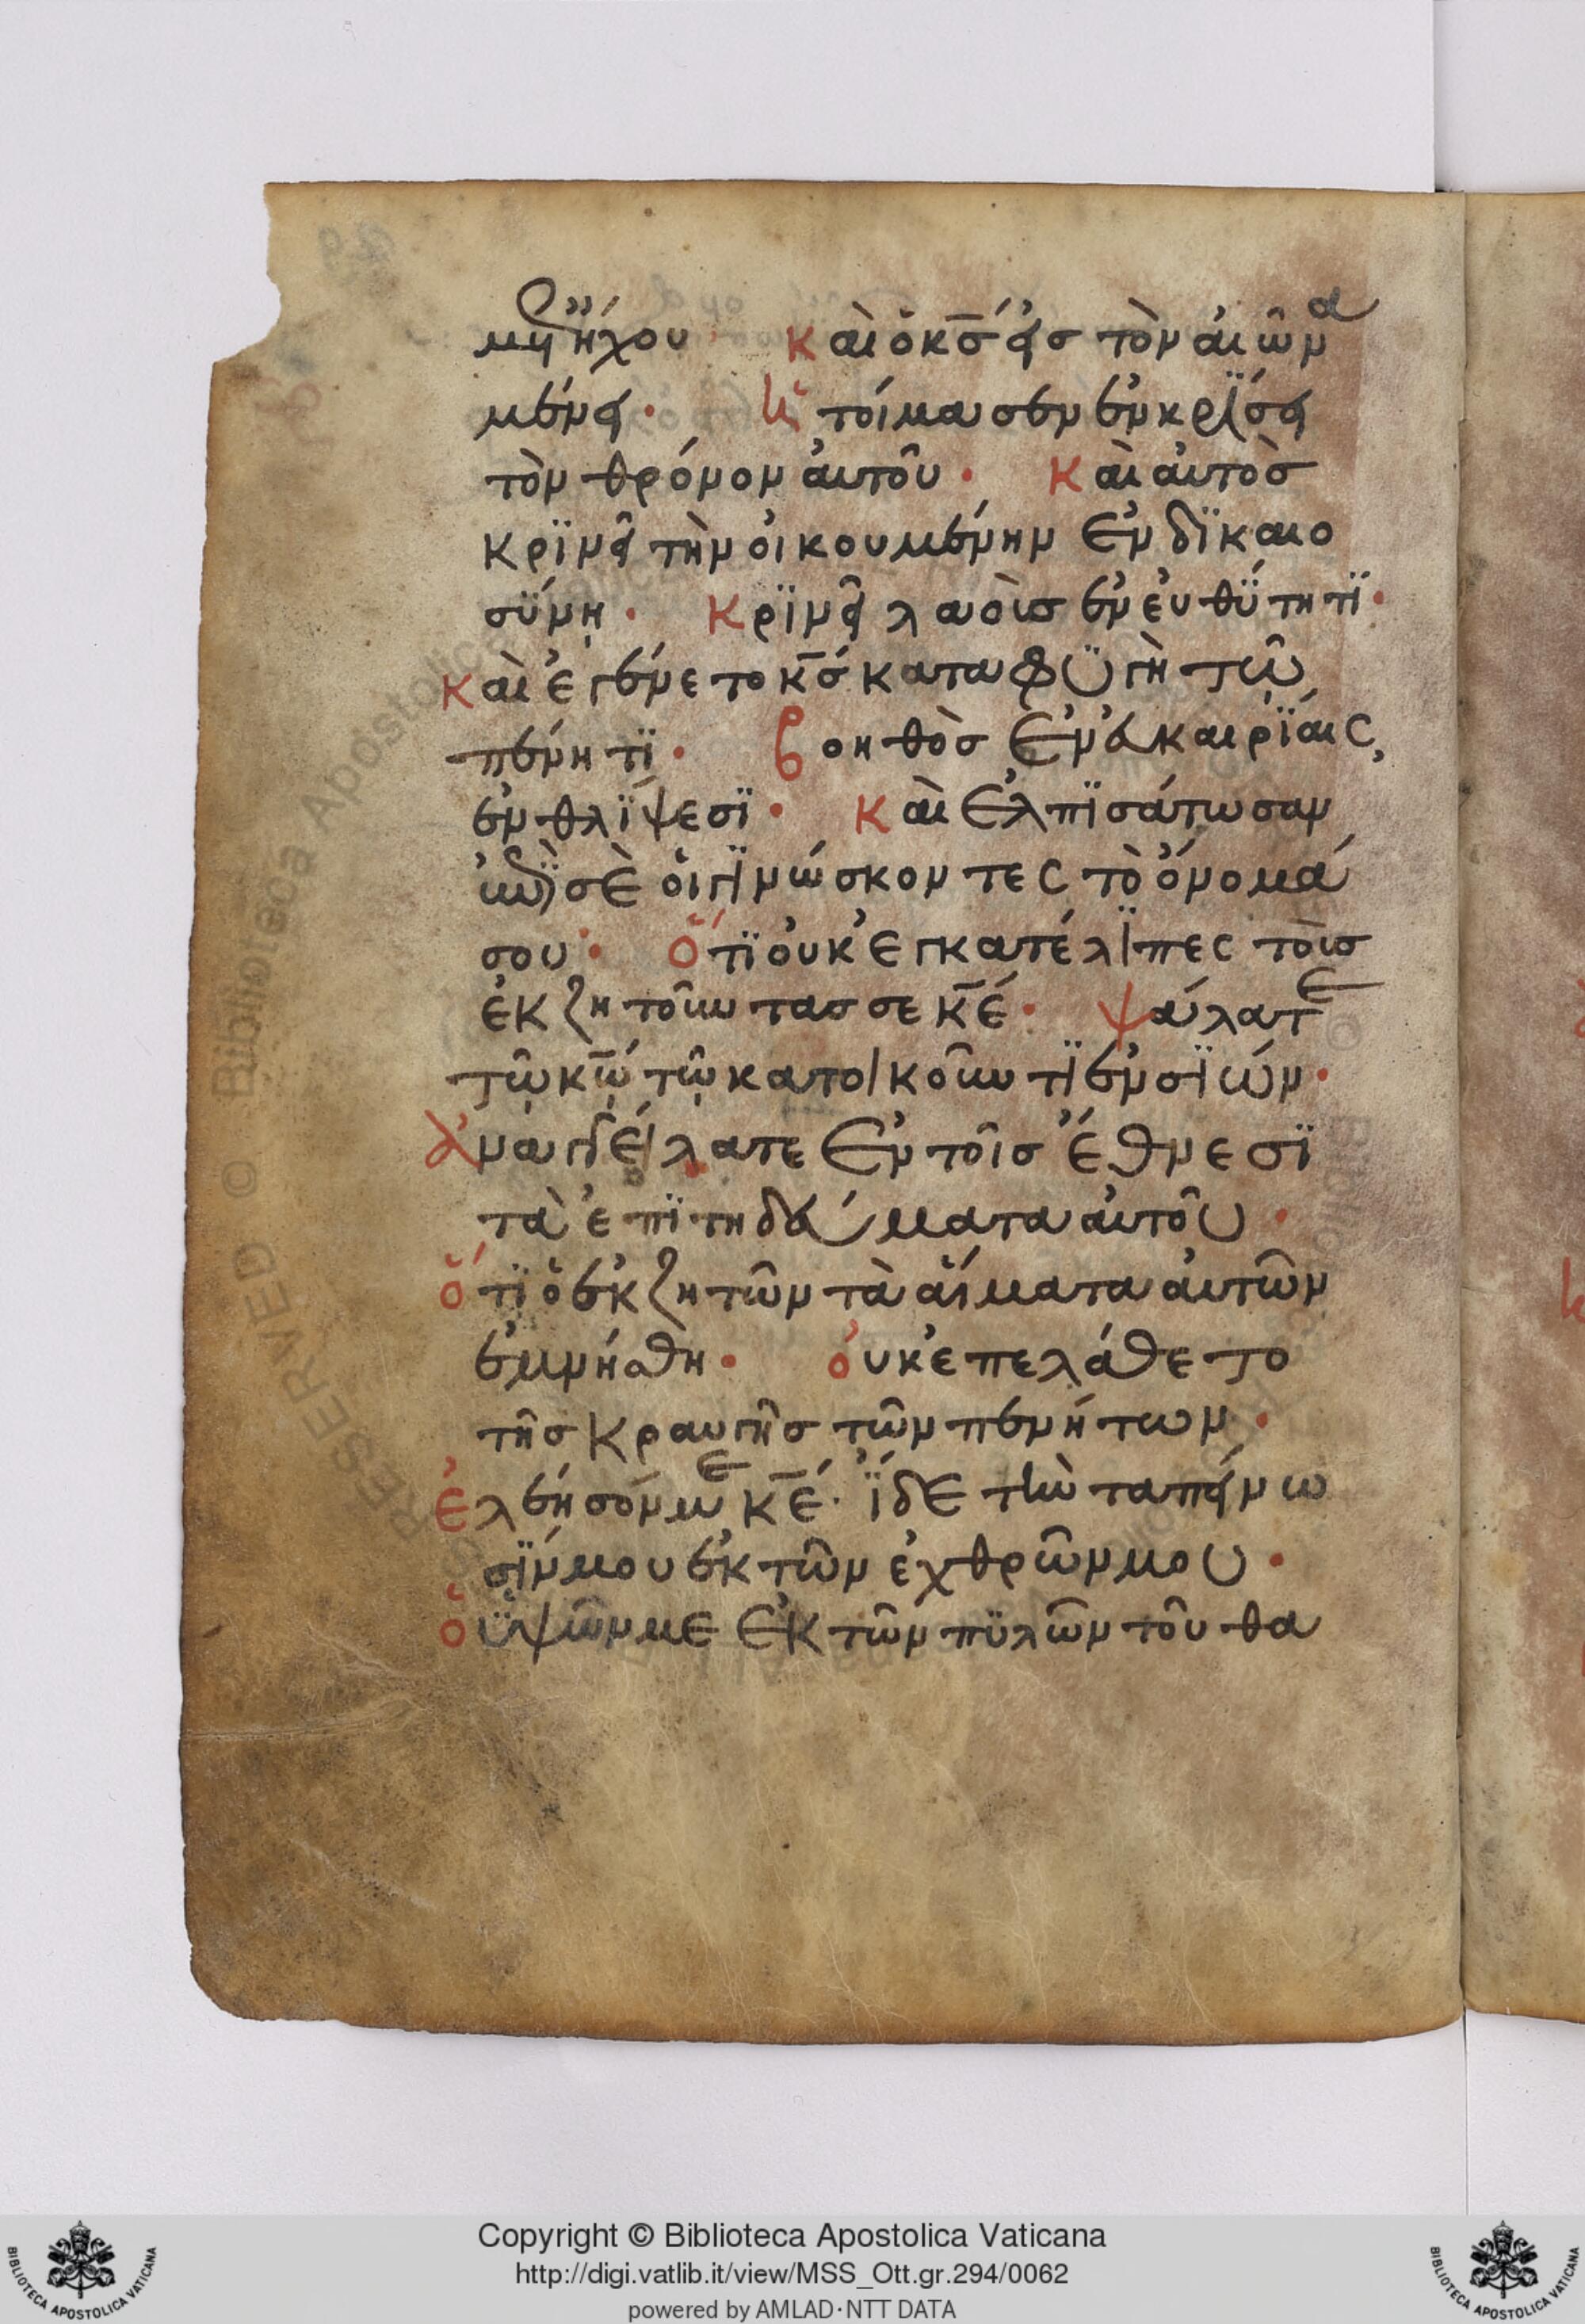 μετ' ἤχου καὶ ὁ κς̄ εἰς τὸν αἰῶνα
μένει· ἡτοίμασεν ἐν κρίσει
τὸν θρόνον αὐτοῦ· καὶ αὐτὸσ
κρϊνεῖ τὴν οἰκουμένην ἐν δϊκαιο
σύνη· Κρϊνεῖ λαοὺσ ἐν εὐθϋτητϊ·
καὶ ἐγένετο κς̄ καταφϋγὴ τῶ
πένητϊ· βοηθὸσ ἐν εὐκαιρϊαις
ἐν θλϊψεσϊ· καὶ ἐλπϊσάτωσαν
ἐπὶ σὲ οἱ γϊνώσκοντες τὸ ὄνομά
σου· ὅτϊ οὐκ ἐγκατέλϊπες τοὺσ
ἐκζητοῦντασ σε κε̄· ψάλατε
τῷ κω̄ τῷ κατοικοῦντϊ ἐν σϊών·
ἀναγγείλατε ἐν τοῖσ ἔθνεσϊ
τὰ ἐπϊτηδεύματα αὐτοῦ·
ὅτϊ ὁ ἐκζητῶν τὰ αἵματα αὐτῶν
ἐμνήσθη· οὐκ ἐπελάθετο
τῆσ κραυγῆσ τῶν πενήτων·
ἐλέησόν με κε̄· ἴδε τὴν ταπείνω
σϊν μου ἐκ τῶν ἐχθρῶν μου·
ὁ ὑψῶν με ἐκ τῶν πϋλῶν τοῦ θα
Copyright © Biblioteca Apostolica Vaticana
http://digi.vatlib.it/view/MSS_Ott.gr.294/0062
powered by AMLAD·NTT DATA
BIBLIOTECA APOSTOLICA VATICANA
BIBLIOTECA APOSTOLICA VATICANA